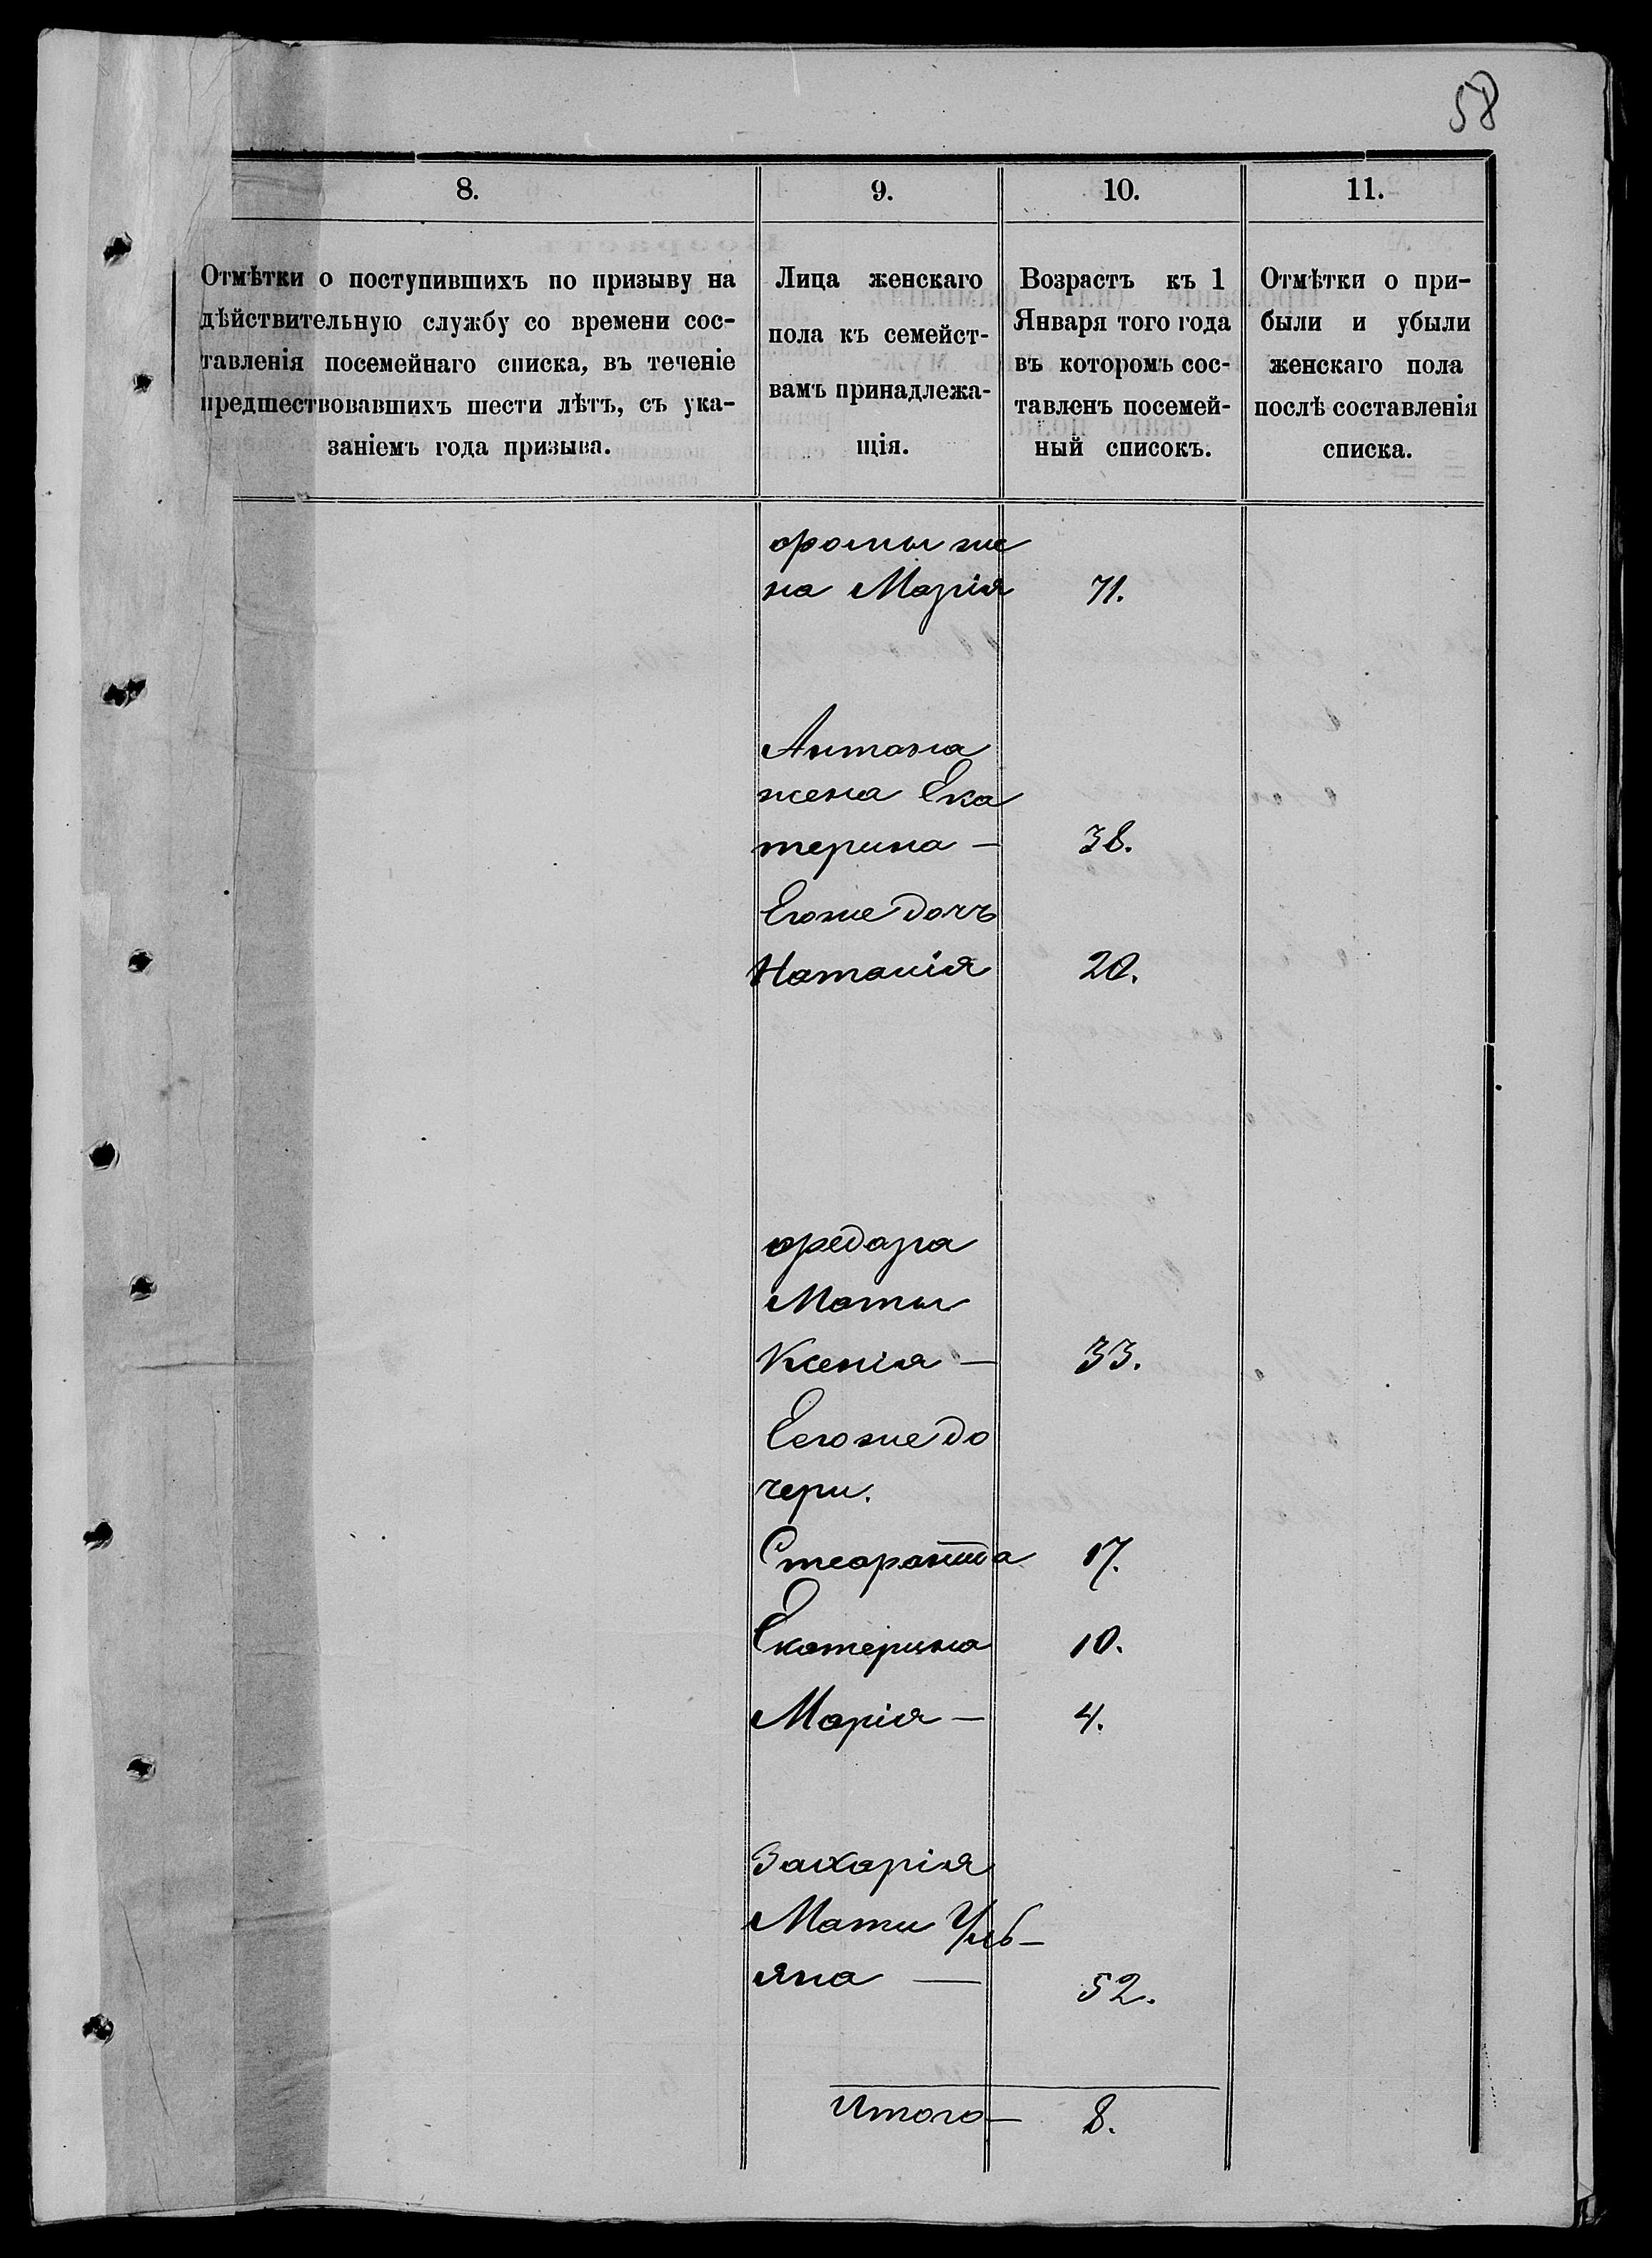 58
8.
9.
10.
11.
Отмѣтки о поступившихъ по призыву на
дѣйствительную службу со времени сос-
тавленія посемейнаго списка, въ теченіе
предшествовавшихъ шести лѣтъ, съ ука-
заніемъ года призыва.
Лица женскаго
пола къ семейст-
вамъ принадлежа-
щія.
Возрастъ къ 1
Января того года
въ которомъ сос-
тавленъ посемей-
ный списокъ.
Отмѣтки о при-
были и убыли
женскаго пола
послѣ составленія
списка.
Фомы же
на Марія 71.
Антона
жена Ека
терина — 38.
Егоже дочь
Наталія 20.
Федора
Маты
Ксенія — 33.
Егоже до
чери.
17.
Екатерина 10.
Марія — 4.
Захарія
Мати Уль-
яна — 52.
Итого — 8.